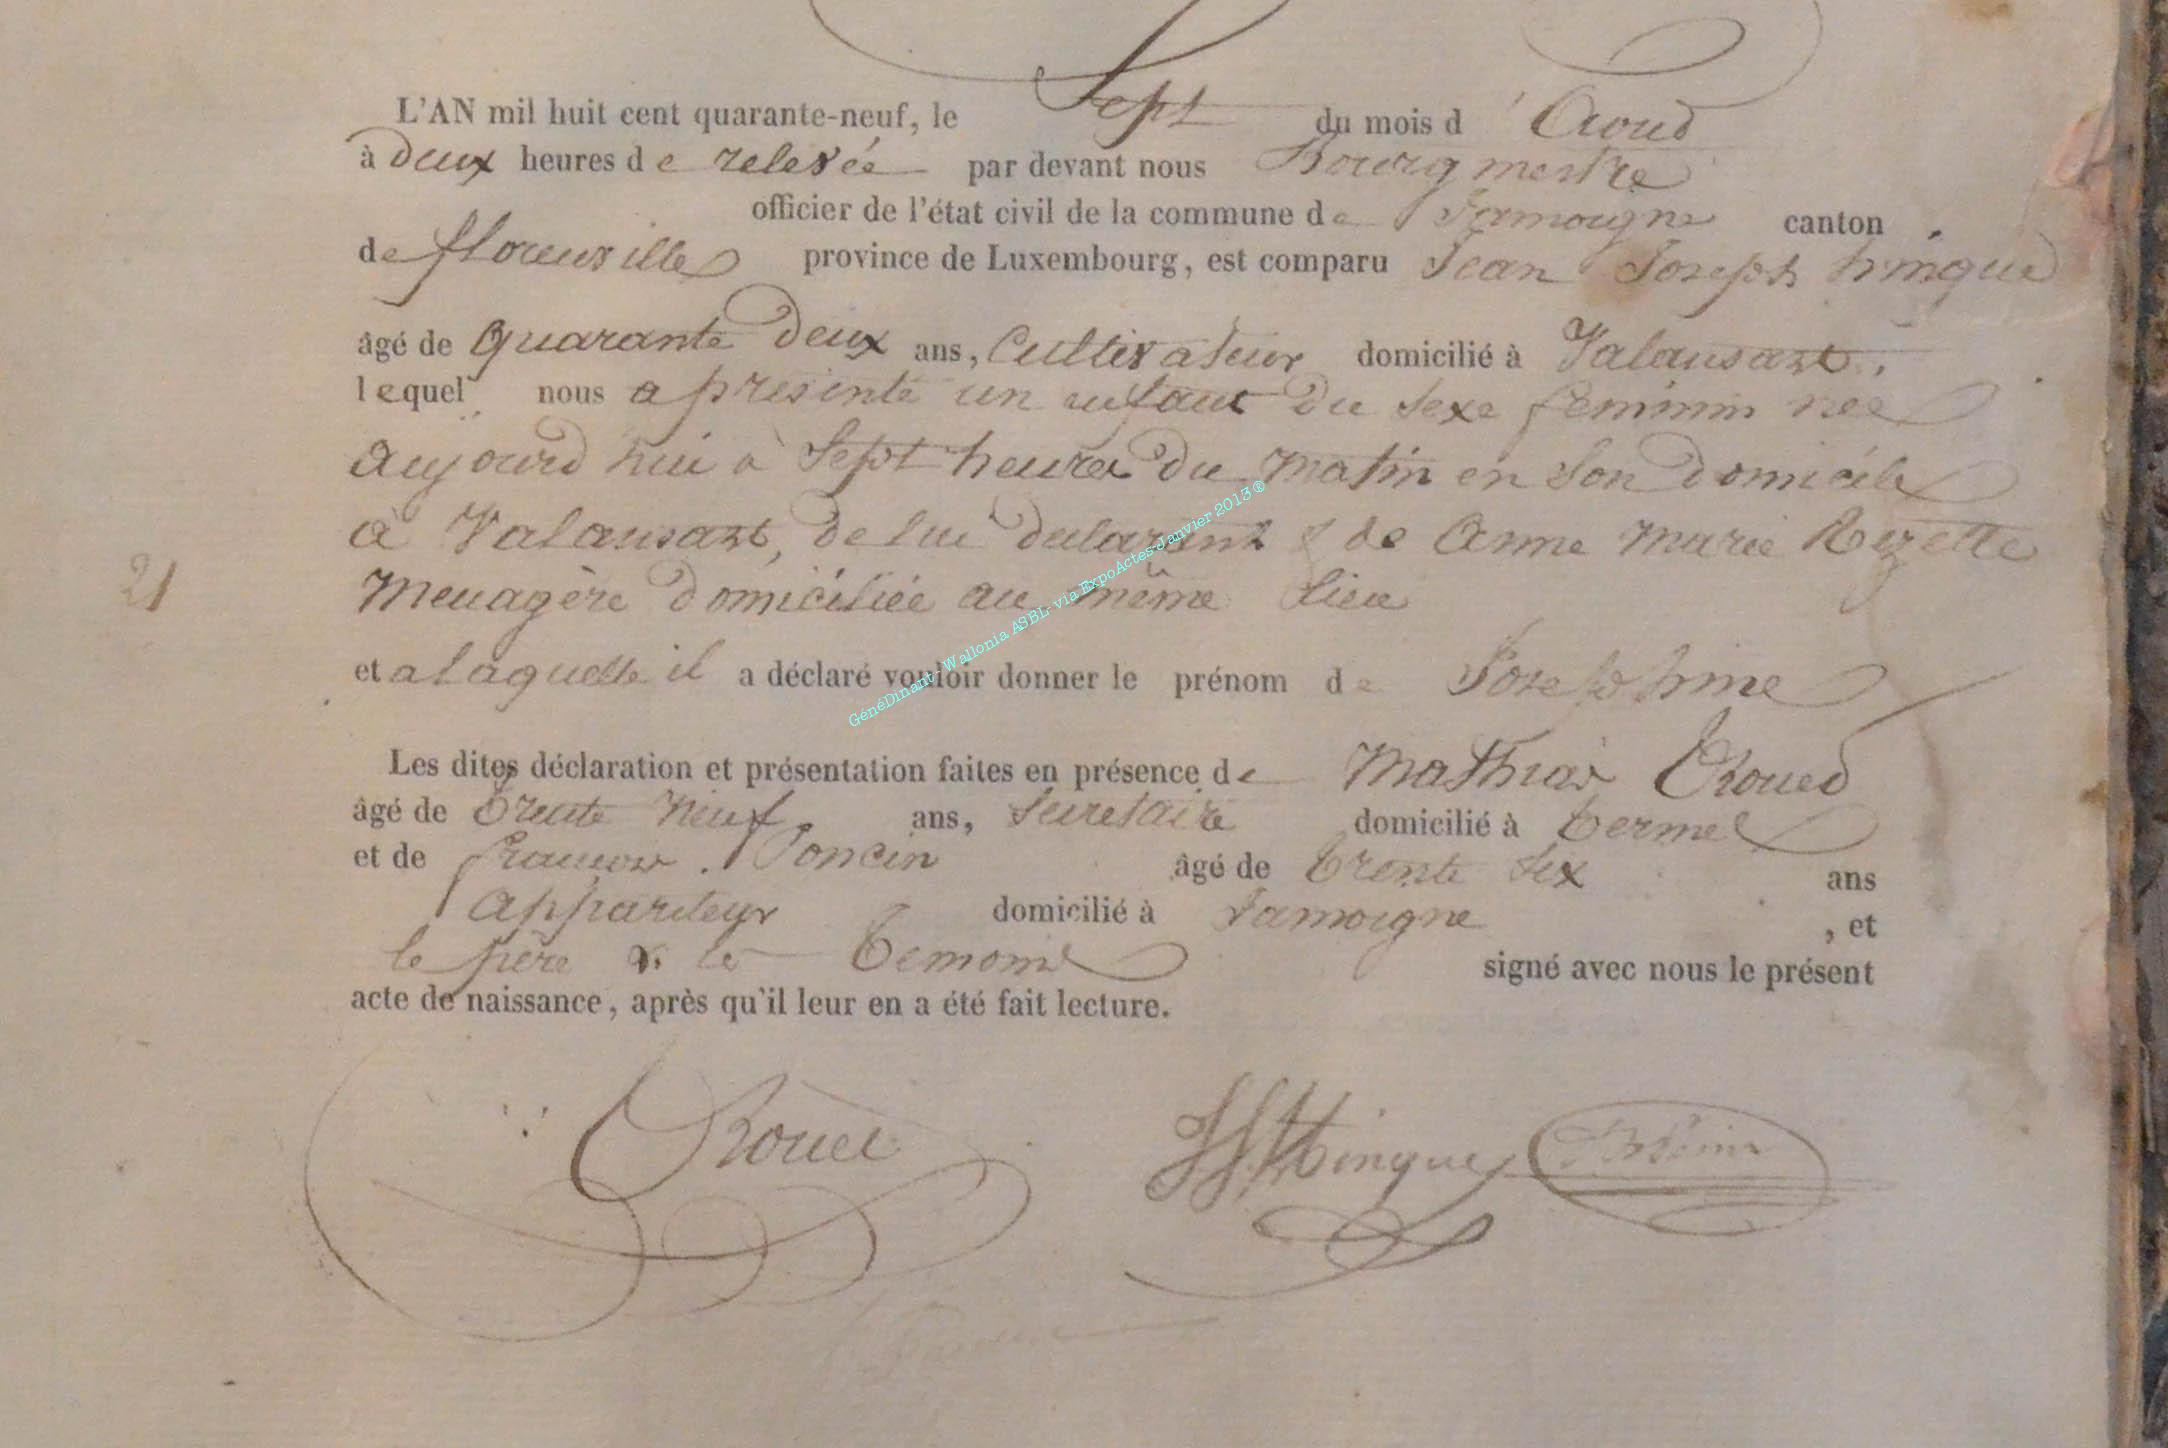 L'AN mil huit cent quarante-neuf, le Sept du mois d'Aoud
à deux heures de relevée par devant nous Bourgmestre
officier de l'état civil de la commune de Jamoigne canton
de florenville province de Luxembourg, est comparu Jean Joseph hinque
âgé de quarante deux ans, Cultivateur domicilié à Valansart,
lequel nous a présenté un enfant du sexe féminin née
aujourd hui à Sept heures du matin en son domicile
à Valansart, de lui déclarant & de Anne Marie Rezette
Menagère domiciliée au même lieu
21
et a laquelle il a déclaré vouloir donner le prénom de Josephine
Les dites déclaration et présentation faites en présence de Mathias
âgé de trente neuf ans, Secretaire domicilié à termes
et de françois Poncin âgé de trente six ans
appariteur domicilié à Jamoigne, et
le père & les temoins signé avec nous le présent
acte de naissance, après qu'il leur en a été fait lecture.
JJHinque
GénéDinant Wallonia ASBL-via ExpoActes-Janvier 2013®